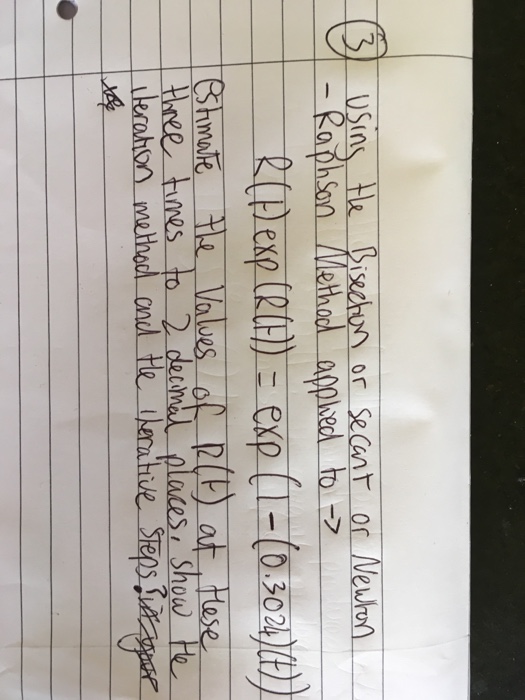 3 Using the Bisection or secant or Newton
- Raphson Method applied to →
R(t) exp(R(t)) = exp (1 - (0.3024)(t))
estimate the values of R(t) at these
three times to 2 decimal places, show the
iteration method and the iterative steps?